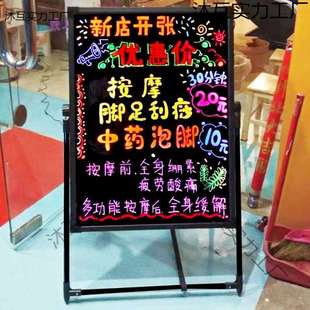 沐互实力工厂
沐互实力工厂
新店开张
优惠价
按摩
30分钟
脚足刮痧
20元
中药泡脚
10元
按摩前,全身绷紧
疲劳酸痛
多功能按摩后,全身缓解